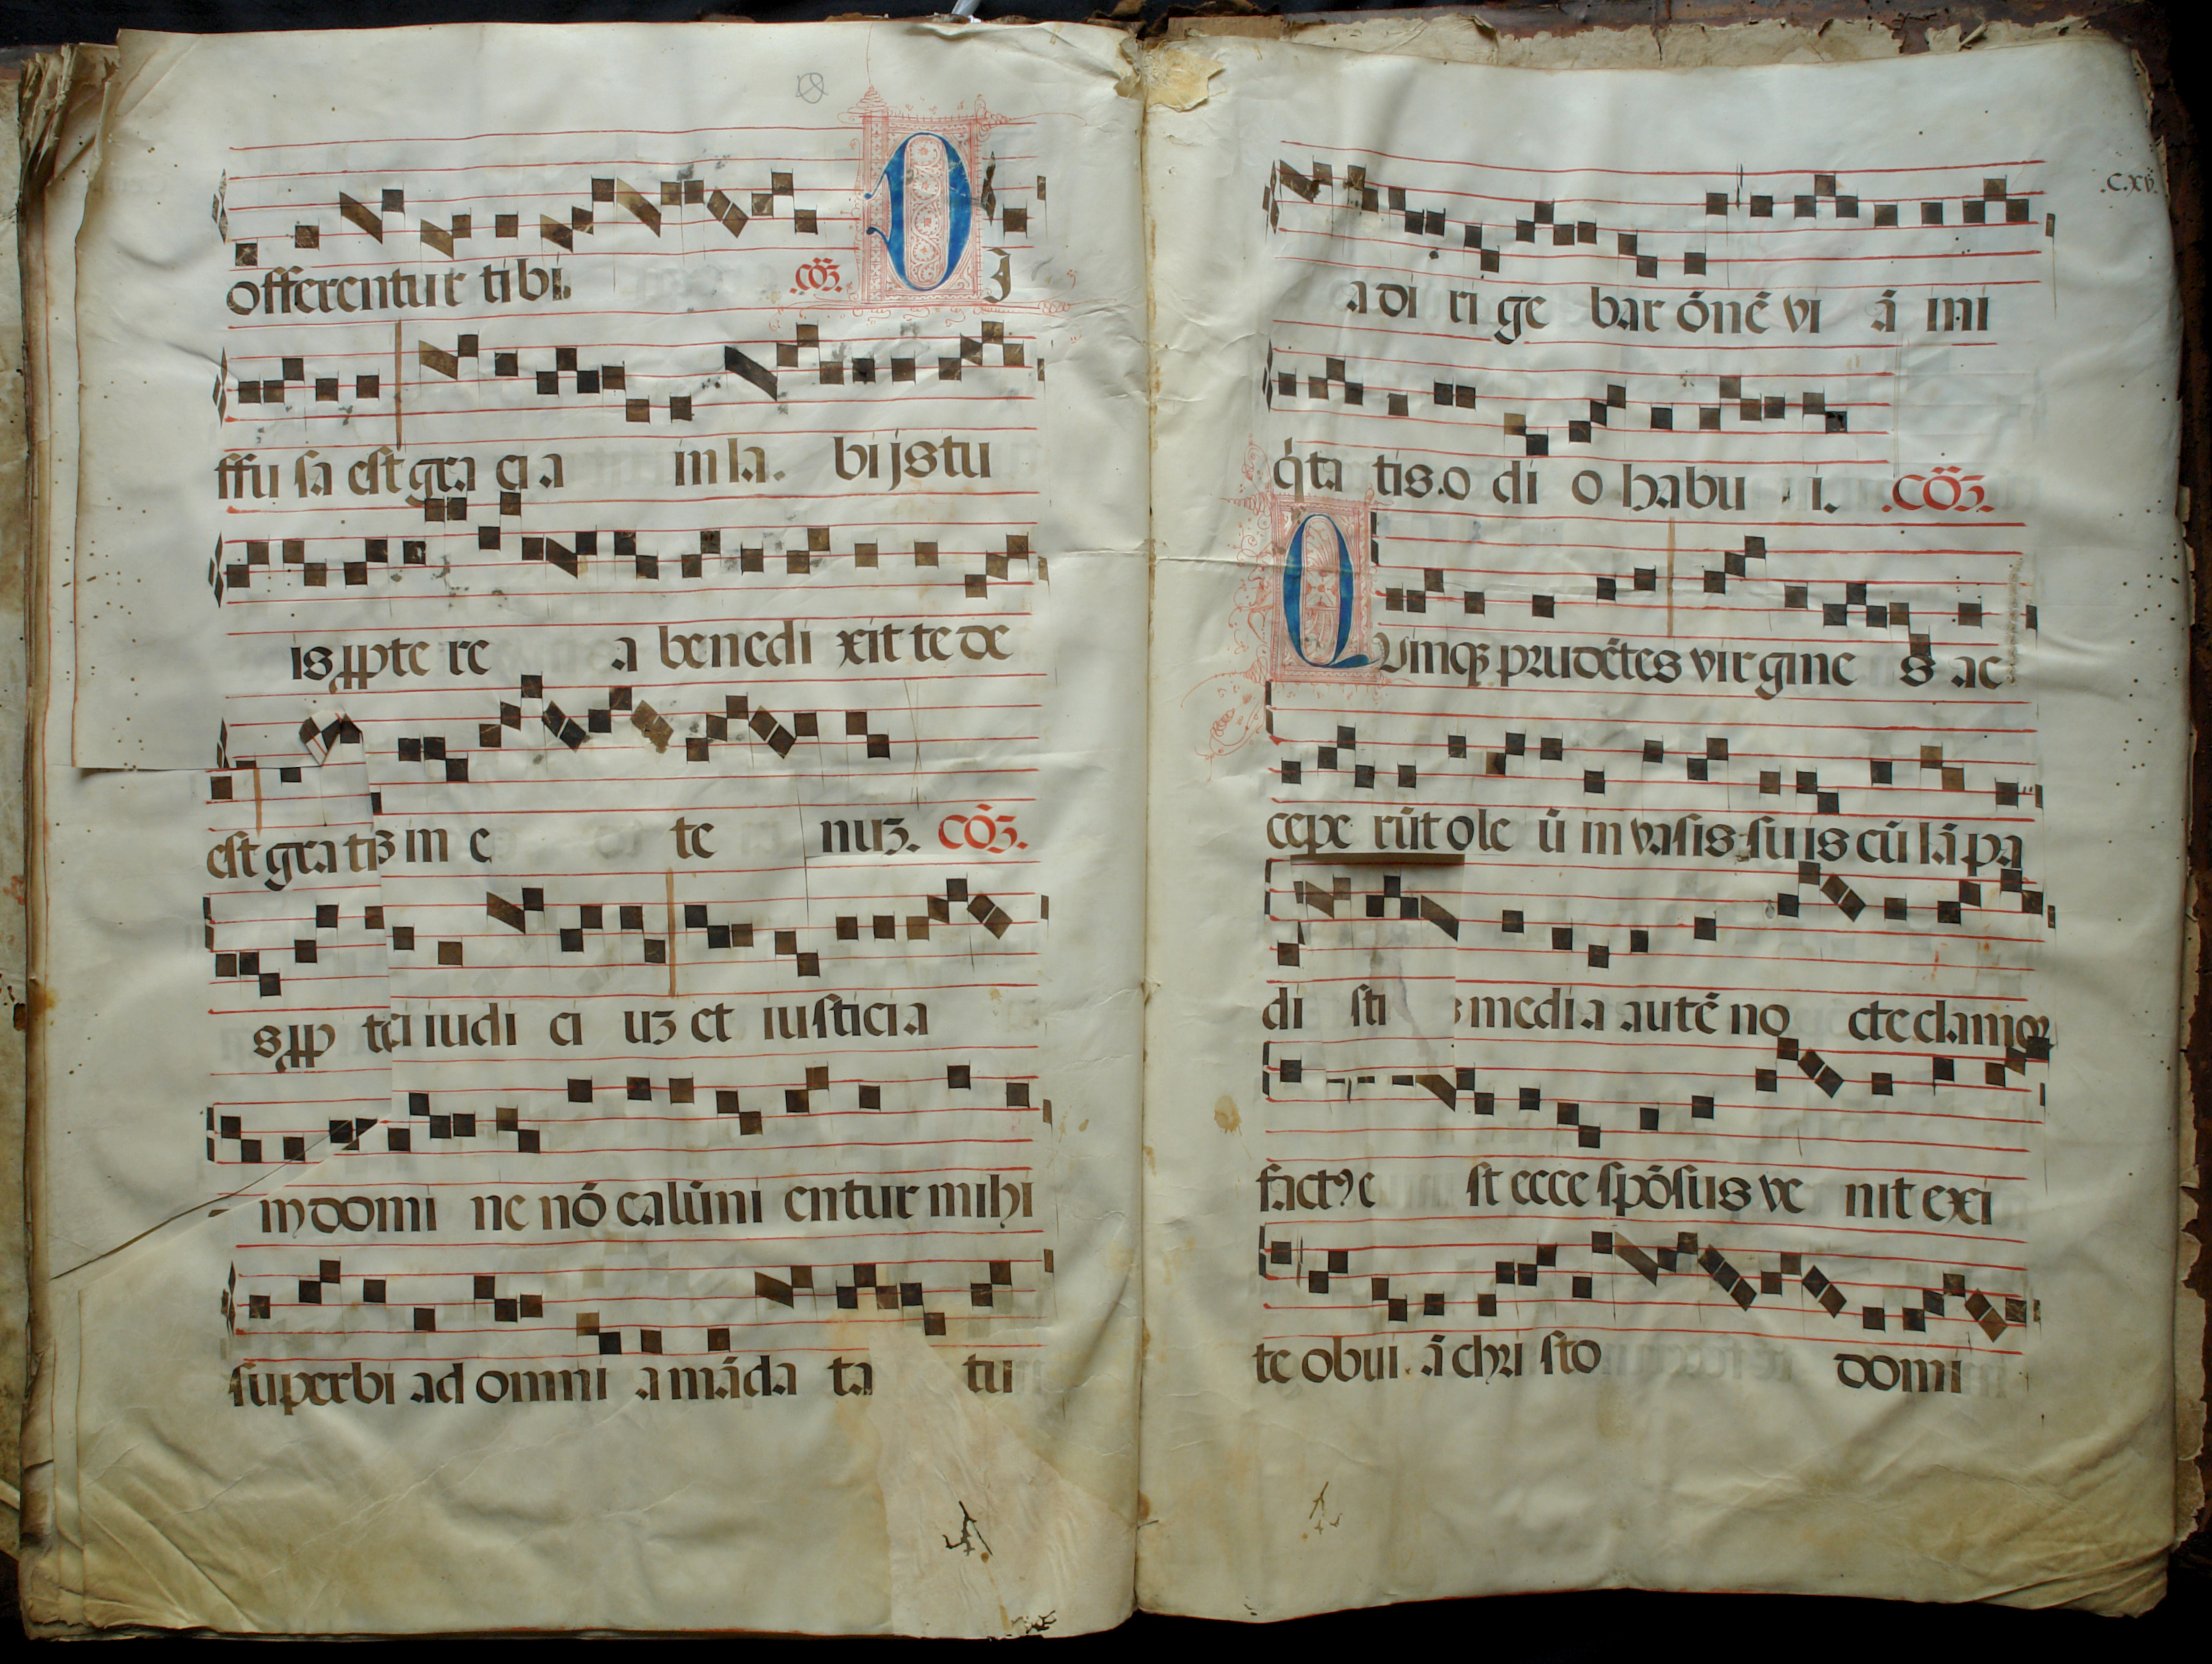 offerentur tibi. .cōz. D J
ffu sa est gra ci a in la. bijs tu
is ꝓpte re a benedi xit te de
est gra tiz in e te nuz. cōz.
s ꝓp tei iudi ci uz et iusticia
m domi ne nō calūni entur mihi
superbi ad omni a māda ta tu
.c.xv.
a di ri ge bar ōnē vi ā ini
q̇ta tis. o di o habu i. .cōz.
Quinqꝫ prudētes virgine s ac
cepe rūt ole ū in vasis suis cū lāpa
di media autē no cte clamor
factꝰ e st ecce spōsus ve nit exi
te obui. ā chri sto domi